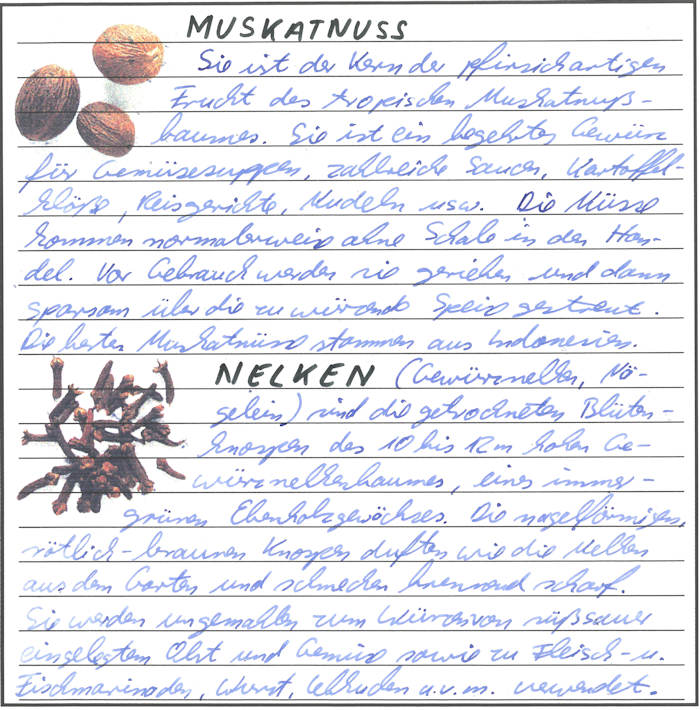 MUSKATNUSS
Sie ist der Kern der pfirsichartigen
Frucht des tropischen Muskatnuß-
baumes. Sie ist ein begehrtes Gewürz
für Gemüsesuppen, zahlreiche Saucen, Kartoffel-
klöße, Reisgerichte, Nudeln usw. Die Nüsse
kommen normalerweise ohne Schale in den Han-
del. Vor Gebrauch werden sie gerieben und dann
sparsam über die zu würzende Speise gestreut.
Die besten Muskatnüsse stammen aus Indonesien.
NELKEN (Gewürznelken, Nä-
gelein) sind die getrockneten Blüten-
knospen des 10 bis 12 m hohen Ge-
würznelkenbaumes, eines immer-
grünen Ebenholzgewächses. Die nagelförmigen,
rötlich-braunen Knospen duften wie die Nelken
aus dem Garten und schmecken brennend scharf.
Sie werden ungemahlen zum Würzen von süßsauer
eingelegtem Obst und Gemüse sowie zu Fleisch- u.
Fischmarinaden, Wurst, Lebkuchen u.v.m. verwendet.